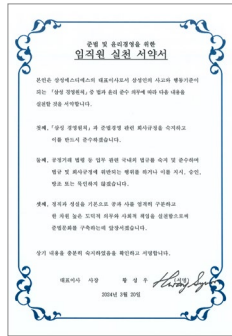 준법 및 윤리경영을 위한
임직원 실천 서약서
본인은 삼성에스디에스의 대표이사로서 삼성인의 사고와 행동기준이
되는 「삼성 경영원칙」 중 법과 윤리 준수 의무에 따라 다음 내용을
실천할 것을 서약합니다.
첫째, 「삼성 경영원칙」과 준법경영 관련 회사규정을 숙지하고
이를 반드시 준수하겠습니다.
둘째, 공정거래 법령 등 업무 관련 국내외 법규를 숙지 및 준수하며
법규 및 회사규정에 위반되는 행위를 하거나 이를 지시, 승인,
방조 또는 묵인하지 않겠습니다.
셋째, 정직과 성실을 기본으로 공과 사를 엄격히 구분하고
한 차원 높은 도덕적 의무와 사회적 책임을 실천함으로써
준법문화를 구축하는데 앞장서겠습니다.
상기 내용을 충분히 숙지하였음을 확인하고 서명합니다.
대표이사 사장 황 성 우 (서명)
2024년 3월 20일